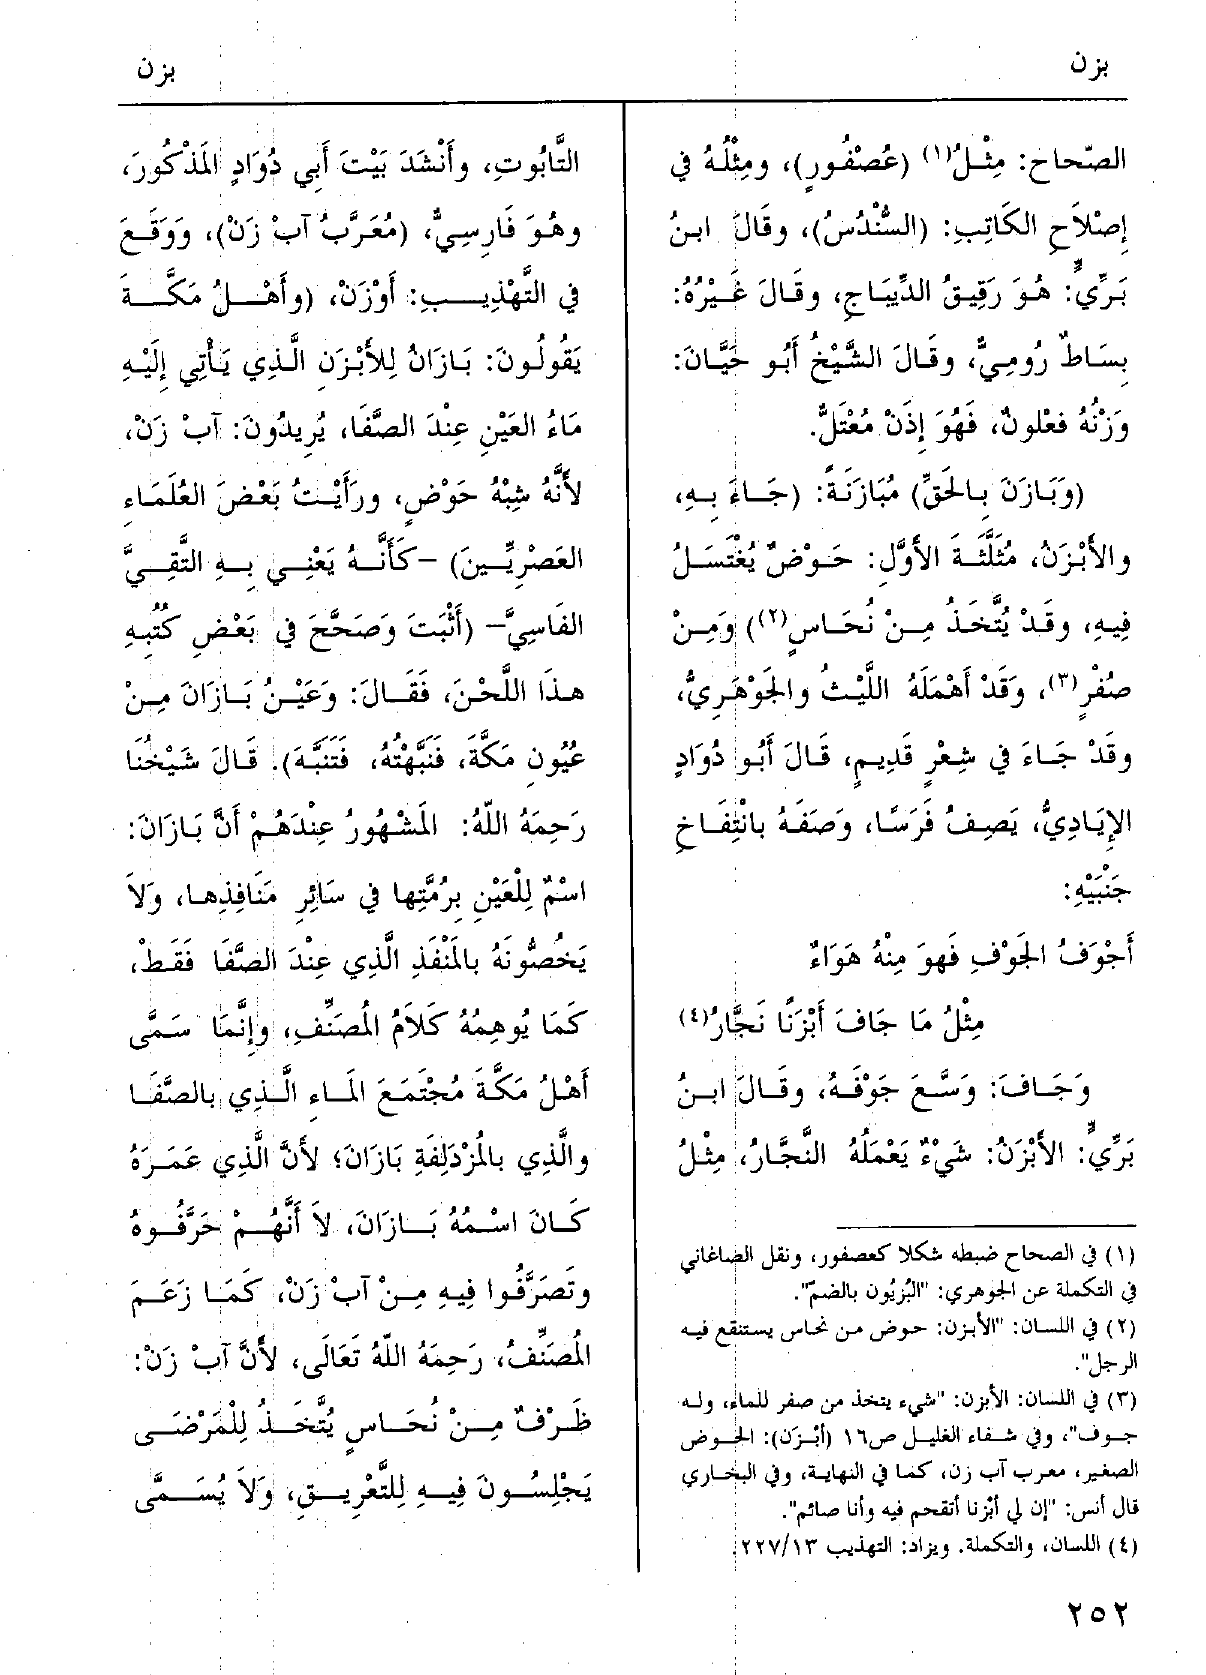 بزن
بزن
الصّحاح: مِثْلُ(١) (عُصْفُورٍ)، ومِثْلُهُ في
إِصْلَاحِ الكَاتِبِ: (السُّنْدُسُ)، وقَالَ ابنُ
بَرِّيٍّ: هُوَ رَقِيقُ الدِّيبَاجِ، وقَالَ غَيْرُهُ:
بِسَاطٌ رُومِيٌّ، وقَالَ الشَّيْخُ أَبُو حَيَّانَ:
وَزْنُهُ فعْلونٌ، فَهُوَ إِذَنْ مُعْتَلٌّ.
(وَبَازَنَ بِالحَقِّ) مُبَازَنَةً: (جَاءَ بِهِ،
والأَبْزَنُ، مُثَلَّثَةَ الأَوَّلِ: حَوْضٌ يُغْتَسَلُ
فِيهِ، وقَدْ يُتَّخَذُ مِنْ نُحَاسٍ(٢)) وَمِنْ
صُفْرٍ(٣)، وَقَدْ أَهْمَلَهُ اللَّيْثُ والجَوْهَرِيُّ،
وقَدْ جَاءَ في شِعْرٍ قَدِيمٍ، قَالَ أَبُو دُوَادٍ
الإِيَادِيُّ، يَصِفُ فَرَسًا، وَصَفَهُ بانْتِفَاخِ
جَنْبَيْهِ:
أَجْوَفُ الجَوْفِ فَهوَ مِنْهُ هَوَاءٌ
مِثْلُ مَا جَافَ أَبْزَنًا نَجَّارُ(٤)
وَجَافَ: وَسَّعَ جَوْفَهُ، وقَالَ ابنُ
بَرِّيٍّ: الأَبْزَنُ: شَيْءٌ يَعْمَلُهُ النَّجَّارُ، مِثْلُ
(١) في الصحاح ضبطه شكلا كعصفور، ونقل الصاغاني
في التكملة عن الجوهري: "البُزيُون بالضمّ".
(٢) في اللسان: "الأبزن: حوض من نحاس يستنقع فيه
الرجل".
(٣) في اللسان: الأبزن: "شيء يتخذ من صفر للماء، وله
جوف"، وفي شفاء الغليل ص١٦ (أبْزَن): الحوض
الصغير، معرب آب زن، كما في النهاية، وفي البخاري
قال أنس: "إن لي أبْزنا أتقحم فيه وأنا صائم".
(٤) اللسان، والتكملة. ويزاد: التهذيب ٢٢٧/١٣.
التَّابُوتِ، وأَنْشَدَ بَيْتَ أَبي دُوَادٍ المَذْكُورَ،
وهُوَ فَارِسِيٌّ، (مُعَرَّبُ آبْ زَنْ)، وَوَقَعَ
في التَّهْذِيبِ: أَوْزَنْ، (وأَهْلُ مَكَّةَ
يَقُولُونَ: بَازَانُ لِلأَبْزَنِ الَّذِي يَأْتِي إِلَيْهِ
مَاءُ العَيْنِ عِنْدَ الصَّفَا، يُرِيدُونَ: آبْ زَنْ،
لأَنَّهُ شِبْهُ حَوْضٍ، ورَأَيْتُ بَعْضَ العُلَمَاءِ
العَصْرِيِّينَ) -كَأَنَّهُ يَعْنِي بِهِ التَّقِيَّ
الفَاسِيَّ- (أَثْبَتَ وَصَحَّحَ في بَعْضِ كُتُبِهِ
هذَا اللَّحْنَ، فَقَالَ: وَعَيْنُ بَازَانَ مِنْ
عُيُونِ مَكَّةَ، فَنَبَّهْتُهُ، فَتَنَبَّهَ). قَالَ شَيْخُنَا
رَحِمَهُ اللّهُ: المَشْهُورُ عِنْدَهُمْ أَنَّ بَازَانَ:
اسْمٌ لِلْعَيْنِ بِرُمَّتِها في سَائِرِ مَنَافِذِها، وَلاَ
يَخُصُّونَهُ بالمَنْفَذِ الَّذِي عِنْدَ الصَّفَا فَقَطْ،
كَمَا يُوهِمُهُ كَلاَمُ المُصَنِّفِ، وإِنَّمَا سَمَّى
أَهْلُ مَكَّةَ مُجْتَمَعَ المَاءِ الَّذِي بالصَّفَا
والَّذِي بالمُزْدَلِفَةِ بَازَانَ؛ لأَنَّ الَّذِي عَمَرَهُ
كَانَ اسْمُهُ بَازَانَ، لاَ أَنَّهُمْ حَرَّفُوهُ
وتَصَرَّفُوا فِيهِ مِنْ آبْ زَنْ، كَمَا زَعَمَ
المُصَنِّفُ، رَحِمَهُ اللّهُ تَعَالَى، لأَنَّ آبْ زَنْ:
ظَرْفٌ مِنْ نُحَاسٍ يُتَّخَذُ لِلْمَرْضَى
يَجْلِسُونَ فِيهِ لِلتَّعْرِيقِ، وَلاَ يُسَمَّى
٢٥٢